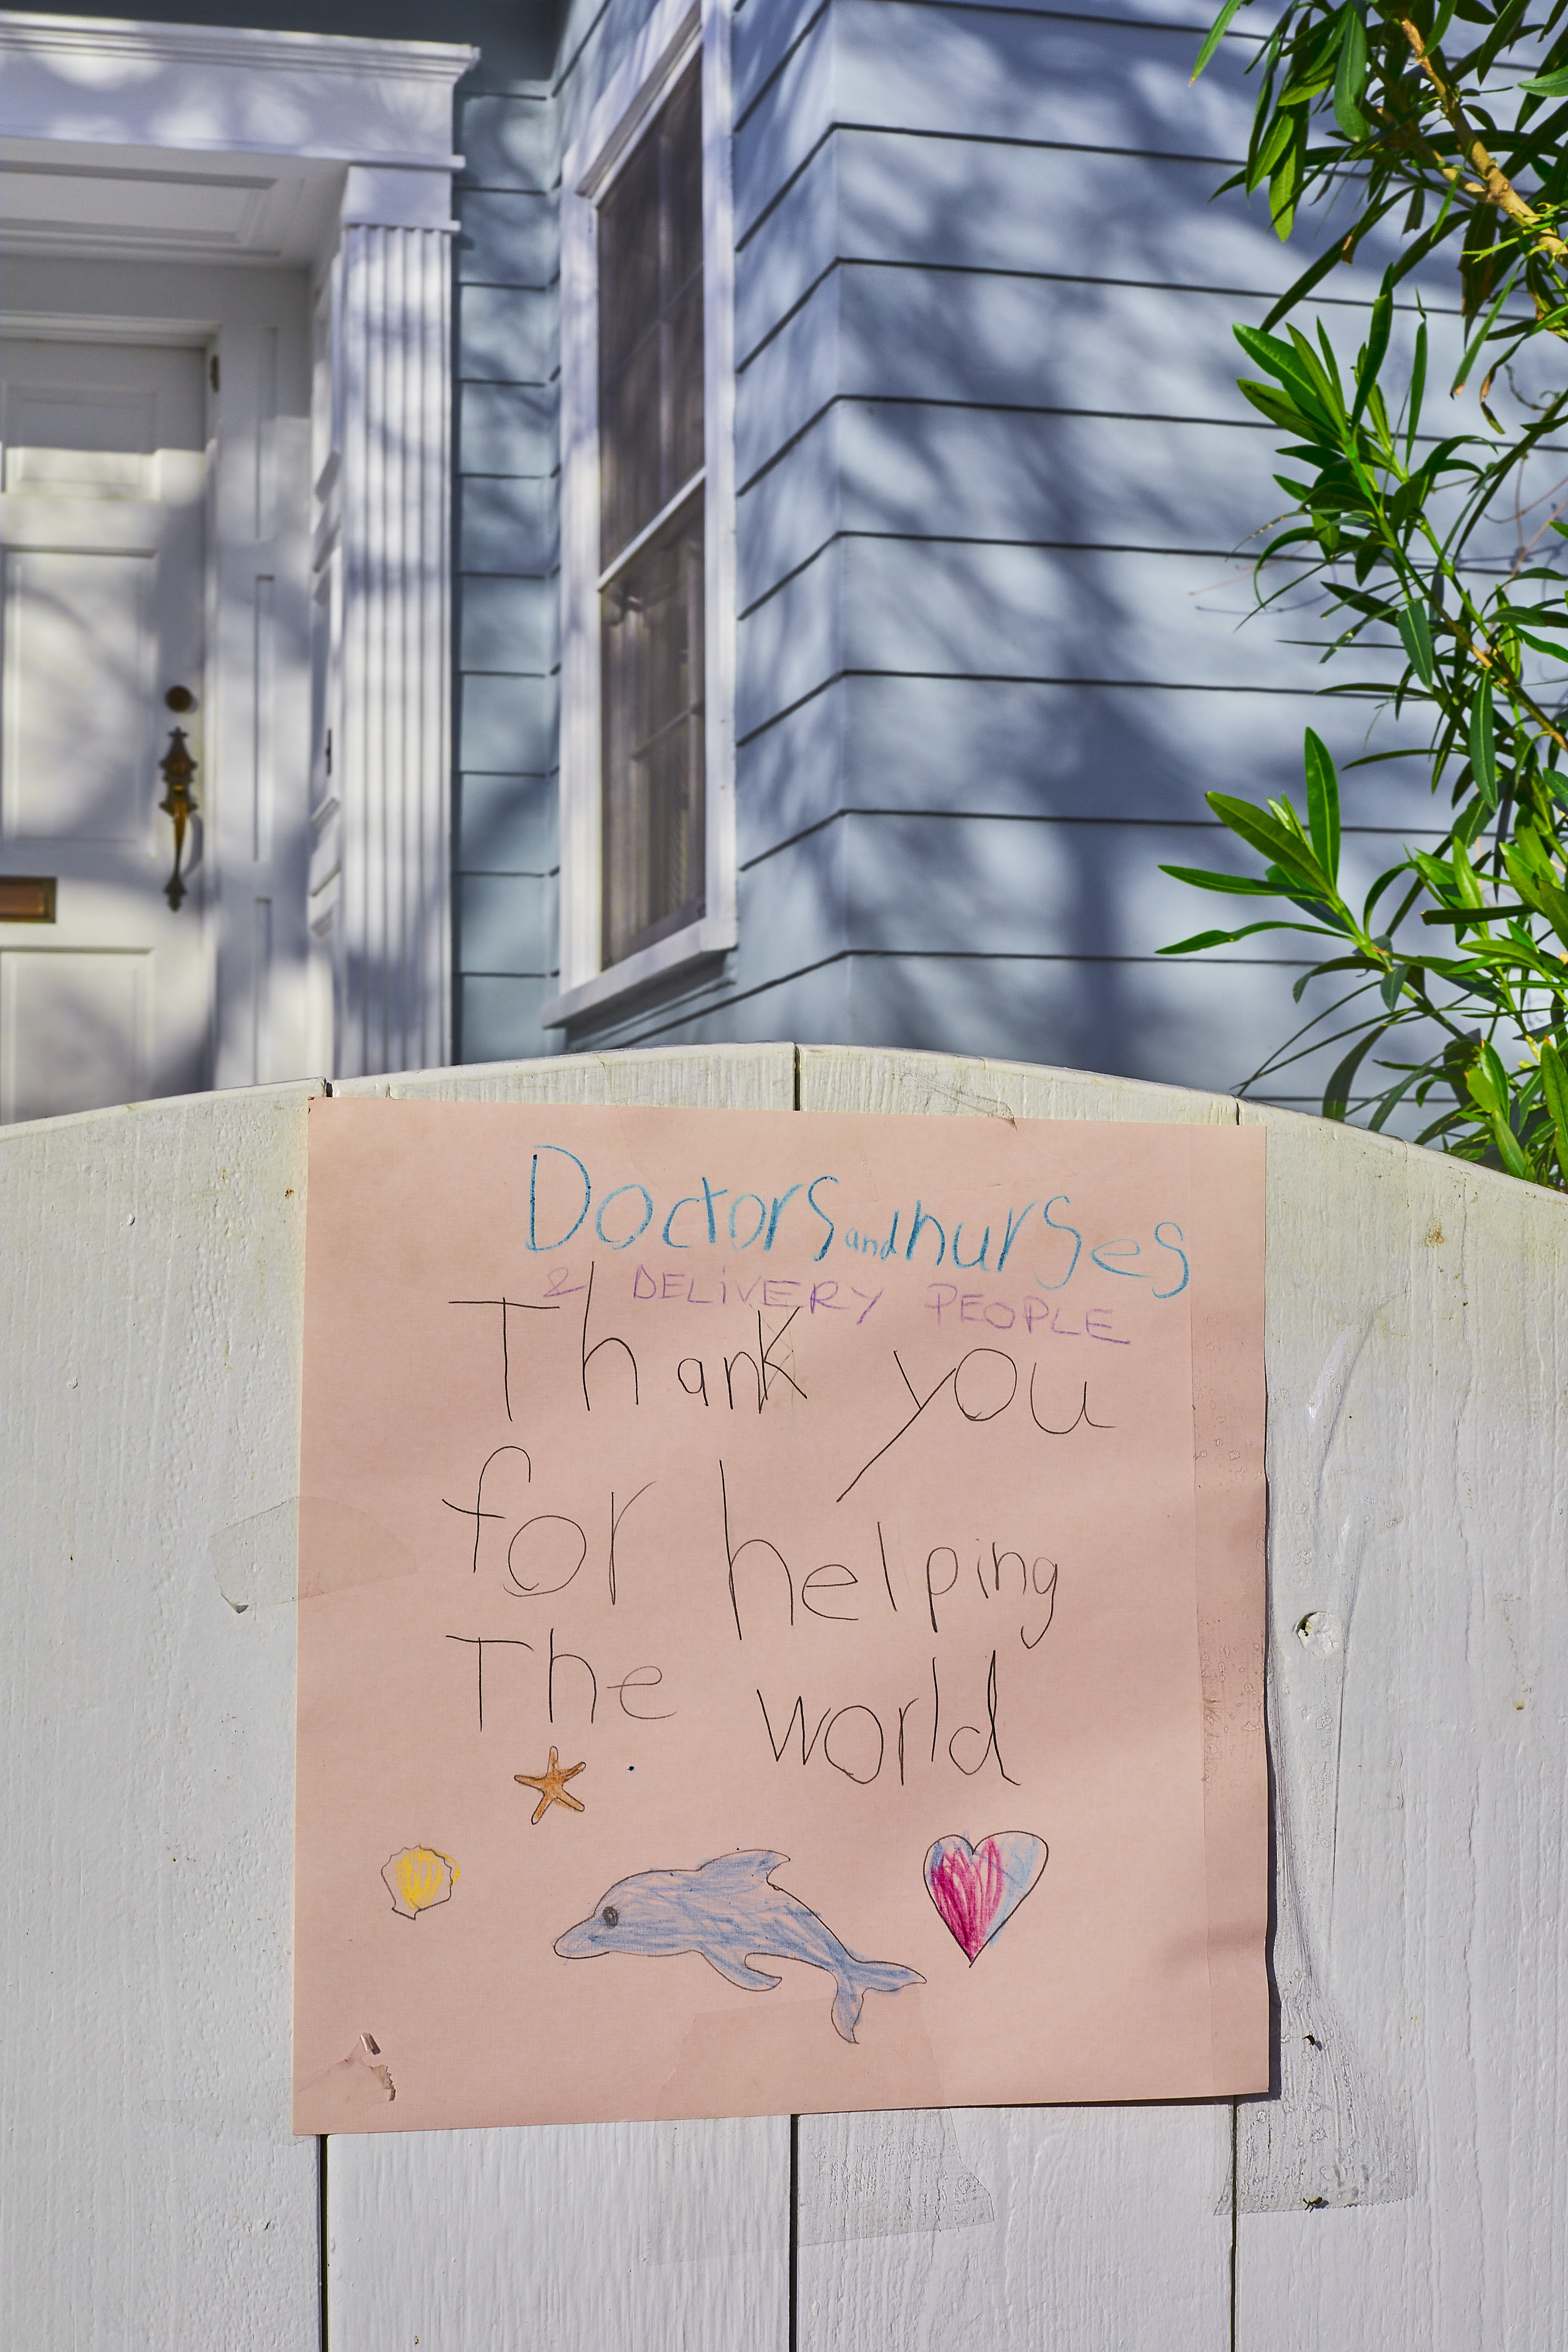 Doctors and nurses
& DELiVERY PEOPLE
Thank you
for helping
The world